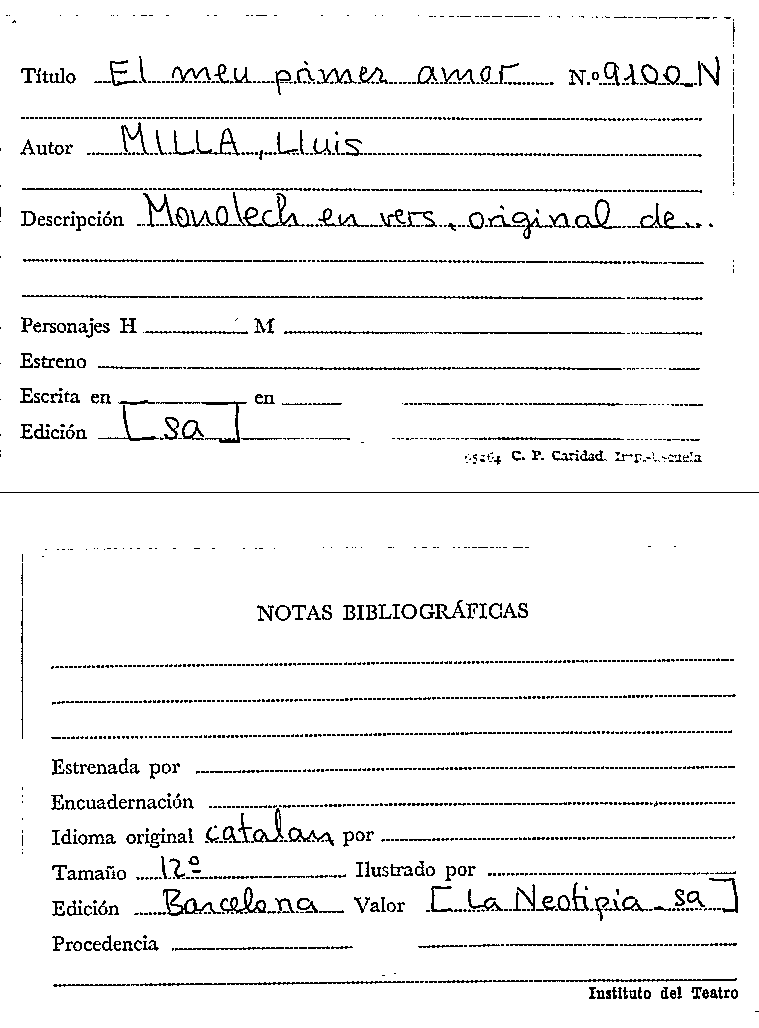 Título El meu primer amor N.º 9100_N
Autor MILLA, Lluis
Descripción Monolech en vers, original de...
Personajes H M
Estreno
Escrita en en
Edición [sa]
C. P. Caridad.
NOTAS BIBLIOGRÁFICAS
Estrenada por
Encuadernación
Idioma original catalan por
Tamaño 12º Ilustrado por
Edición Barcelona Valor [La Neotipia_sa]
Procedencia
Instituto del Teatro